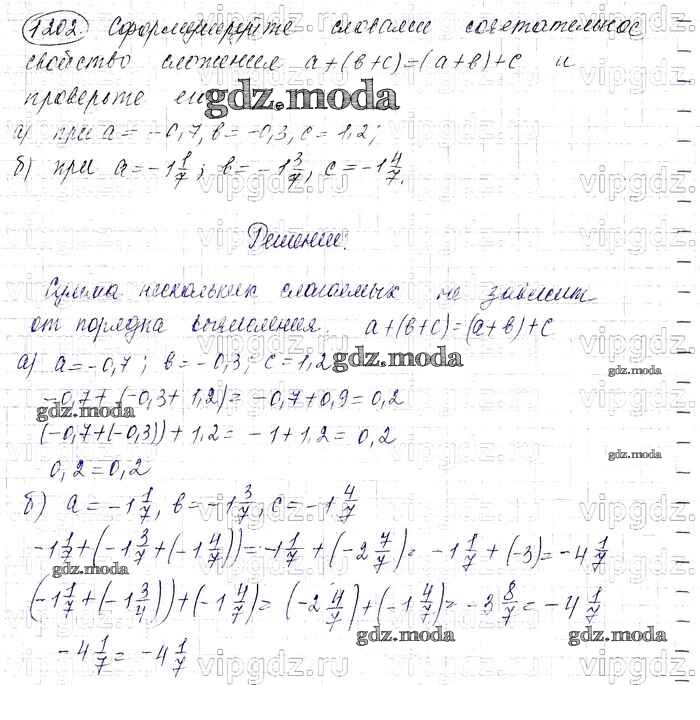 1202. Сформулируйте словами сочетательное
свойство сложения a+(в+с)=(а+в)+с и
проверьте его
gdz.moda
а) при а= -0,7, в= -0,3, с= 1,2;
б) при а= -1 1/7; в= -1 3/7, с= -1 4/7.
Решение.
Сумма нескольких слагаемых не зависит
от порядка вычисления. а+(в+с)=(а+в)+с
а) а= -0,7; в= -0,3; с= 1,2
gdz.moda
gdz.moda
-0,7+(-0,3+1,2)= -0,7+0,9=0,2
gdz.moda
(-0,7+(-0,3))+1,2= -1+1,2=0,2
0,2=0,2
gdz.moda
б) а= -1 1/7, в= -1 3/7, с= -1 4/7
-1 1/7+(-1 3/7+(-1 4/7))= -1 1/7+(-2 7/7)= -1 1/7+(-3)= -4 1/7
gdz.moda
(-1 1/7+(-1 3/4))+(-1 4/7)= (-2 4/7)+(-1 4/7)= -3 8/7= -4 1/7
gdz.moda
gdz.moda
-4 1/7= -4 1/7
vipgdz.ru